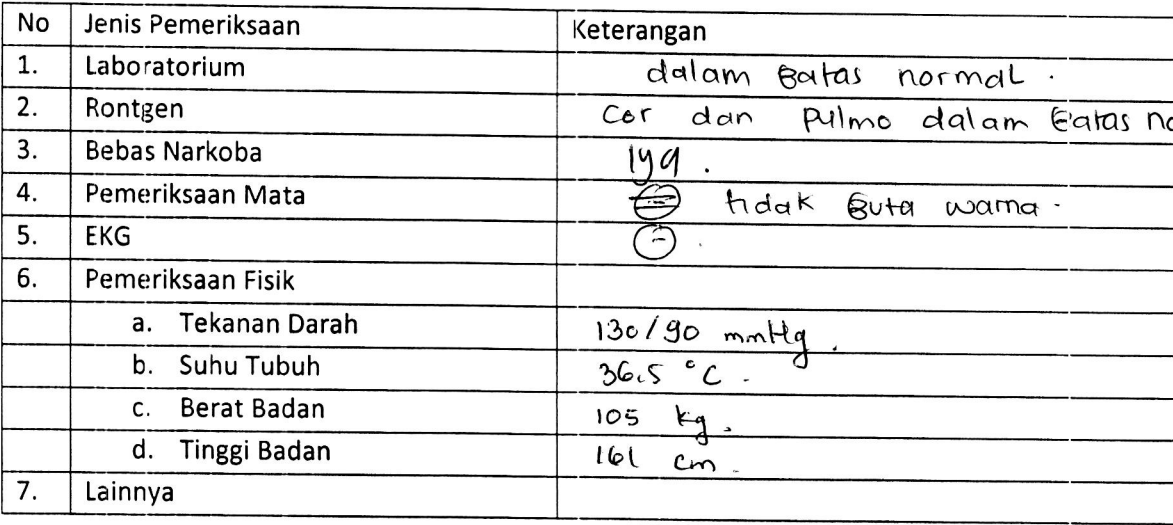 No Jenis Pemeriksaan Keterangan
1. Laboratorium dalam batas normal.
2. Rontgen Cor dan Pulmo dalam batas no
3. Bebas Narkoba Iya.
4. Pemeriksaan Mata tidak buta warna.
5. EKG (-).
6. Pemeriksaan Fisik
a. Tekanan Darah 130/90 mmHg.
b. Suhu Tubuh 36.5 °C.
c. Berat Badan 105 kg.
d. Tinggi Badan 161 cm.
7. Lainnya